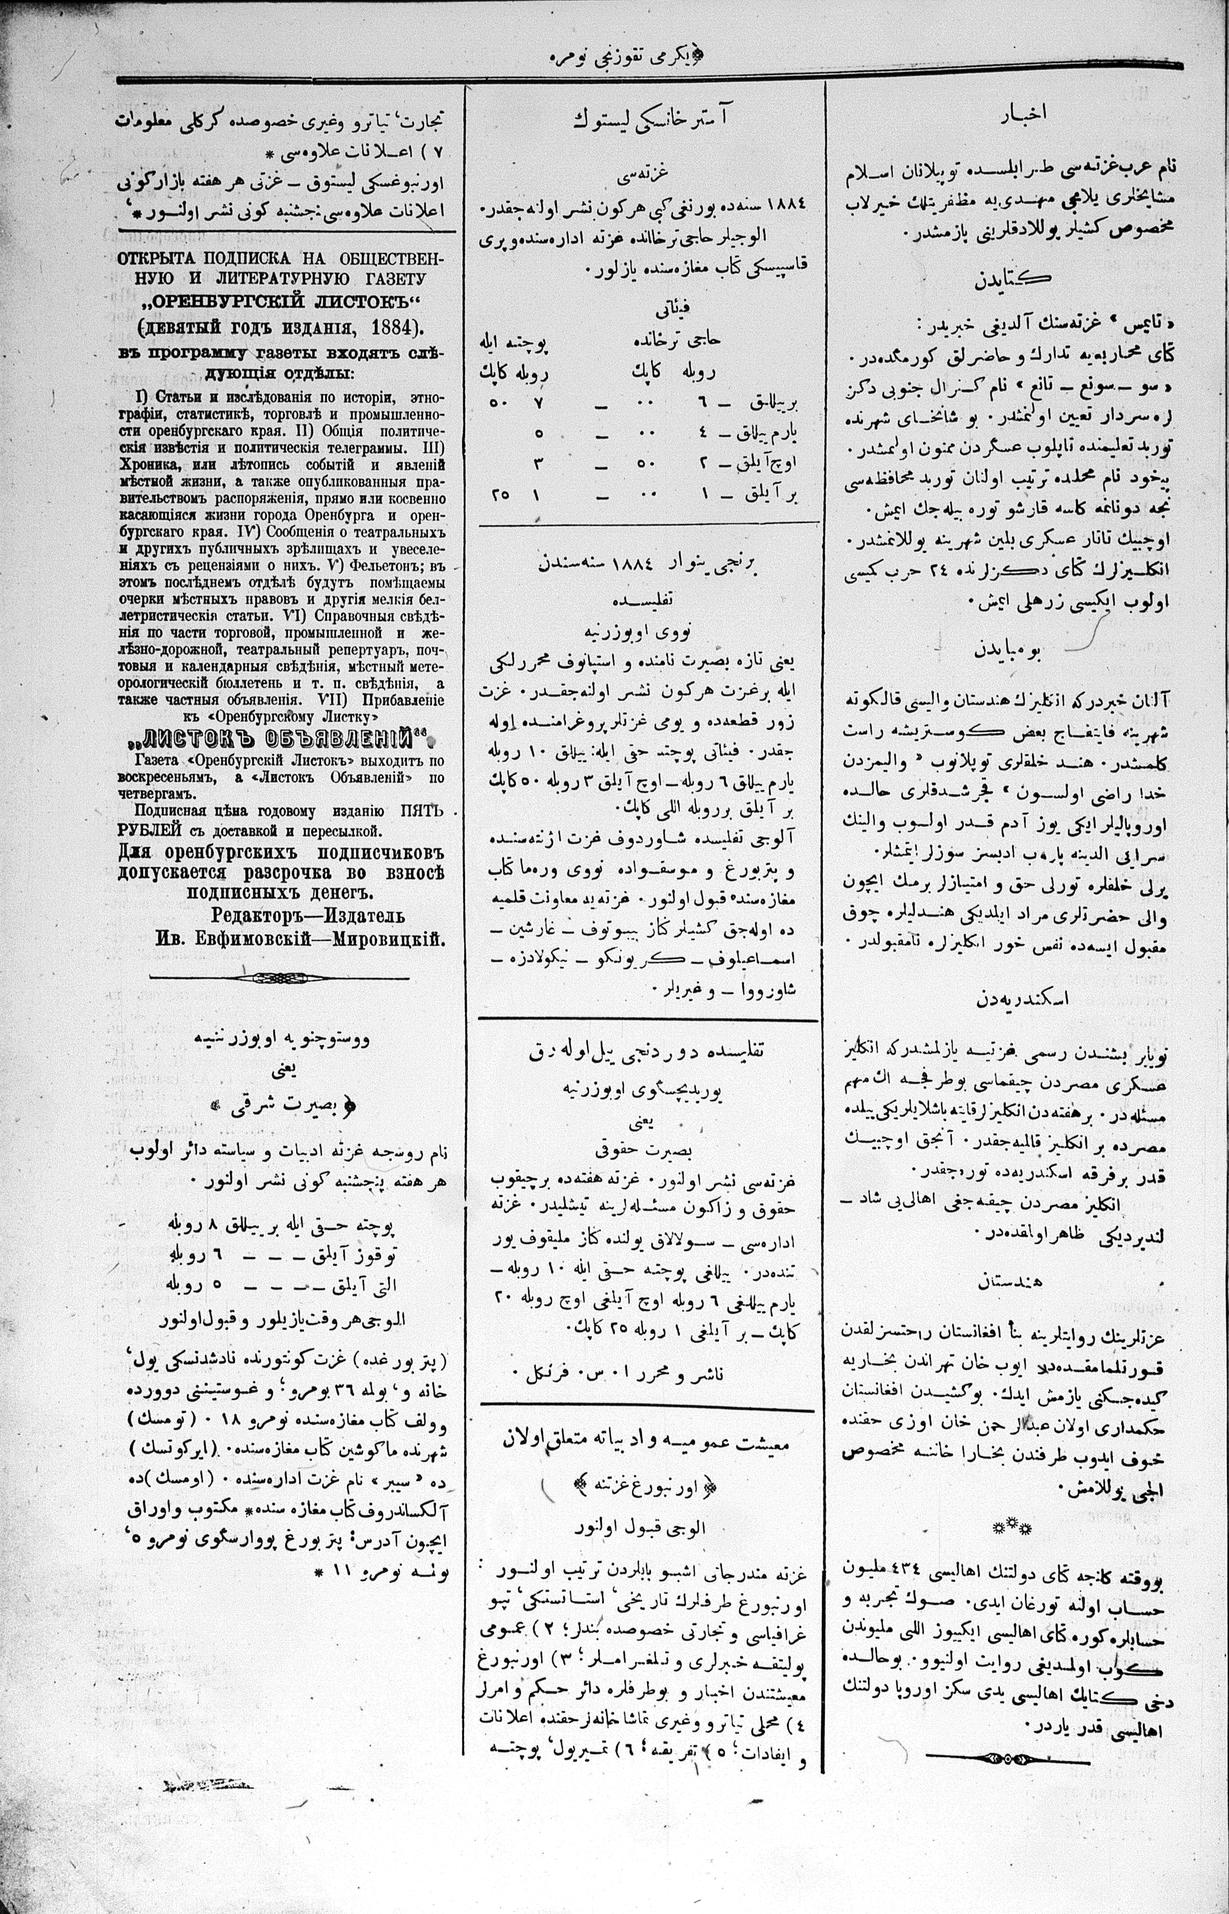 ﴿يكرمى تقوزنجى نومره
اخبار
نام عرب غزته‌سى طرابلسده توپلانان اسلام
مشايخلرى يلامجى مهدى‌يه مظفريتلك خيرلاب
مخصوص كشيلر يوللادقلرينى يازمشدر.
كتايدن
«تايمس» غزته‌سنك آلديغى خبريدر:
كتاى محاربه‌يه تدارك و حاضرلق كورمكده‌در.
«سو — سونغ — تانغ» نام كنرال جنوبى دكز
لره سردار تعيين اولنمشدر. بو شانخاى شهرنده
توربد تعليمنده تاپلوب عسكردن ممنون اولمشدر.
پيخود نام محلده ترتيب اولنان توربد محافظه‌سى
نجه دونانمه كاسه قارشو توره بيله‌جك ايمش.
اوچبيك تاتار عسكرى پلين شهرينه يوللانمشدر.
انكليزلرك كتاى دكزلرنده ٢٤ حرب كميسى
اولوب ايكيسى زرهلى ايمش.
بومبايدن
آلنان خبردركه انكليزك هندستان واليسى قالكوته
شهرينه فايتفاج بعض كوستريشه راست
كلمشدر. هند خلقلرى توپلانوب «واليمزدن
خدا راضى اولسون» قچرشدقلرى حالده
اوروپاليلر ايكى يوز آدم قدر اولوب والينك
سرايى الدينه باروب ادبسز سوزلر ايتمشلر.
يرلى خلقلره تورلى حق و امتيازلر برمك ايچون
والى حضرتلرى مراد ايلديكى هندليلره چوق
مقبول ايسه‌ده نفس خور انكليزلره نامقبولدر.
اسكندريه‌دن
نويابر بشندن رسمى غزتيه يازلمشدركه انكليز
عسكرى مصردن چيقماسى بو طرفجه اك مهم
مسئله‌در. بر هفته‌دن انكليزلر قايته باشلايلر يكى ييلده
مصرده بر انكليز قالميه‌جقدر. آنجق اوچبيك
قدر بر فرقه اسكندريه‌ده توره‌جقدر.
انكليز مصردن چيقه‌جغى اهالى‌يى شاد —
لنديرديكى ظاهر اولمقده‌در.
هندستان
غزتلرينك روايتلرينه بنأ افغانستان راحتسزلقدن
قورتلمامقده‌در. ايوب خان تهراندن بخاريه
كيده‌جكنى يازمش ايدك. بو كشيدن افغانستان
حكمدارى اولان عبدالرحمن خان اوزى حقنده
خوف ايدوب طرفندن بخارا خاننه مخصوص
الچى يوللامش.
بو وقته كلنجه كتاى دولتنك اهاليسى ٤٣٤ مليون
حساب اولنه تورغان ايدى. صوك تجربه و
حسابلره كوره كتاى اهاليسى ايكييوز اللى مليوندن
كوب اولمديغى روايت اولنيور. بو حالده
دخى كتايك اهاليسى يدى سكز اوروپا دولتنك
اهاليسى قدر باردر.
آسترخانسكى ليستوك
غزته‌سى
١٨٨٤ سنه‌ده بورنغى كبى هركون نشر اولنه‌جقدر.
الوجيلر حاجى ترخانده غزته اداره‌سنده و پرى
قاسپيسكى كتاب مغازه‌سنده يازلور.
فيئاتى
حاجى ترخانده پوچته ايله
روبله كاپك روبله كاپك
بر ييللق — ٦ ٠٠ — ٧ ٥٠
يارم ييللق — ٤ ٠٠ — ٥
اوچ آيلق — ٢ ٥٠ — ٣
بر آيلق — ١ ٠٠ — ١ ٢٥
برنجى ينوار ١٨٨٤ سنه‌سندن
تفليسده
نووى اوبوزرنيه
يعنى تازه بصيرت نامنده و استپانوف محررلكى
ايله بر غزت هركون نشر اولنه‌جقدر. غزت
زور قطعه‌ده و يومى غزتلر پروغرامنده اوله
جقدر. فيئاتى پوچته حقى ايله: ييللق ١٠ روبله
يارم ييللق ٦ روبله — اوچ آيلق ٣ روبله ٥٠ كاپك
بر آيلق بر روبله اللى كاپك.
آلوجى تفليسده شاوردوف غزت اژنته‌سنده
و پتربورغ و موسقواده نووى ورەما كتاب
مغازه‌سنده قبول اولنور. غزته‌يه معاونت قلميه
ده اوله‌جق كشيلر كناز بيبوتوف — غارشين —
اسماعيلوف — كريونكو — نيكولادزه —
شاورووا — و غيريلر.
تفليسده دوردنجى ييل اوله‌رق
يوريديچسكوى اوبوزرنيه
يعنى
بصيرت حقوقى
غزته‌سى نشر اولنور. غزته هفته‌ده بر چيقوب
حقوق و زاكون مسئله‌لرينه تيشليدر. غزته
اداره‌سى — سولالاق يولنده كناز مليقوف يور
تنده‌در. ييللغى پوچته حقى ايله ١٠ روبله —
يارم ييللغى ٦ روبله اوچ آيلغى اوچ روبله ٢٠
كاپك — بر آيلغى ١ روبله ٢٥ كاپك.
ناشر و محرر ا. س. فرنكل.
معيشت عموميه و ادبياته متعلق اولان
﴿ اورنبورغ غزتنه ﴾
الوجى قبول اولنور
غزته مندرجاتى اشبو بابلردن ترتيب اولنور:
اورنبورغ طرفلرك تاريخى، استاتستكى، تپو
غرافياسى و تجارتى خصوصده بندلر؛ ٢) عمومى
پوليتقه خبرلرى و تلغراملر؛ ٣) اورنبورغ
معيشتندن اخبار و بو طرفلره دائر حكم و امرلر
٤) محلى تياترو و غيرى تماشاخانه‌لر حقنده اعلانات
و ايفادات؛ ٥) تفريقه؛ ٦) تميريول، پوچته
تجارت، تياترو و غيرى خصوصده كركلى معلومات
٧) اعلانات علاوه‌سى *
اورنبوغسكى ليستوق — غزتى هر هفته بازاركونى
اعلانات علاوه‌سى پنجشنبه كونى نشر اولنور *
ОТКРЫТА ПОДПИСКА НА ОБЩЕСТВЕН-
НУЮ И ЛИТЕРАТУРНУЮ ГАЗЕТУ
„ОРЕНБУРГСКІЙ ЛИСТОКЪ“
(ДЕВЯТЫЙ ГОДЪ ИЗДАНІЯ, 1884).
въ программу газеты входятъ слѣ-
дующія отдѣлы:
I) Статьи и изслѣдованія по исторіи, этно-
графіи, статистикѣ, торговлѣ и промышленно-
сти оренбургскаго края. II) Общія политиче-
скія извѣстія и политическія телеграммы. III)
Хроника, или лѣтопись событій и явленій
мѣстной жизни, а также опубликованныя пра-
вительствомъ распоряженія, прямо или косвенно
касающіяся жизни города Оренбурга и орен-
бургскаго края. IV) Сообщенія о театральныхъ
и другихъ публичныхъ зрѣлищахъ и увеселе-
ніяхъ съ рецензіями о нихъ. V) Фельетонъ; въ
этомъ послѣднемъ отдѣлѣ будутъ помѣщаемы
очерки мѣстныхъ нравовъ и другія мелкія бел-
летристическія статьи. VI) Справочныя свѣдѣ-
нія по части торговой, промышленной и же-
лѣзно-дорожной, театральный репертуаръ, поч-
товыя и календарныя свѣдѣнія, мѣстный мете-
орологическій бюллетень и т. п. свѣдѣнія, а
также частныя объявленія. VII) Прибавленіе
къ «Оренбургскому Листку»
„ЛИСТОКЪ ОБЪЯВЛЕНІЙ“.
Газета «Оренбургскій Листокъ» выходитъ по
воскресеньямъ, а «Листокъ Объявленій» по
четвергамъ.
Подписная цѣна годовому изданію ПЯТЬ
РУБЛЕЙ съ доставкой и пересылкой.
Для оренбургскихъ подписчиковъ
допускается разсрочка во взносѣ
подписныхъ денегъ.
Редакторъ—Издатель
Ив. Евфимовскій—Мировицкій.
ووستوچنويه اوبوزرننيه
يعنى
﴿ بصيرت شرقى ﴾
نام روسجه غزته ادبيات و سياسته دائر اولوب
هر هفته پنجشنبه كونى نشر اولنور.
پوچته حقى ايله بر ييللق ٨ روبله
توقوز آيلق — — — ٦ روبله
التى آيلق — — — ٥ روبله
الوجى هر وقت يازيلور و قبول اولنور
(پتربورغده) غزت كونتورنده نادشدنسكى يول،
خانه و، بولمه ٣٦ نومرو؛ و غوستيننى دوورده
وولف كتاب مغازه‌سنده نومرو ١٨. (تومسك)
شهرنده ماكوشين كتاب مغازه‌سنده. (ايركوتسك)
ده «سيبر» نام غزت اداره‌سنده. (اومسك) ده
آلكساندروف كتاب مغازه‌سنده * مكتوب و اوراق
ايچون آدرس: پتربورغ پووارسكوى نومرو ٥،
نومرو ١١ *